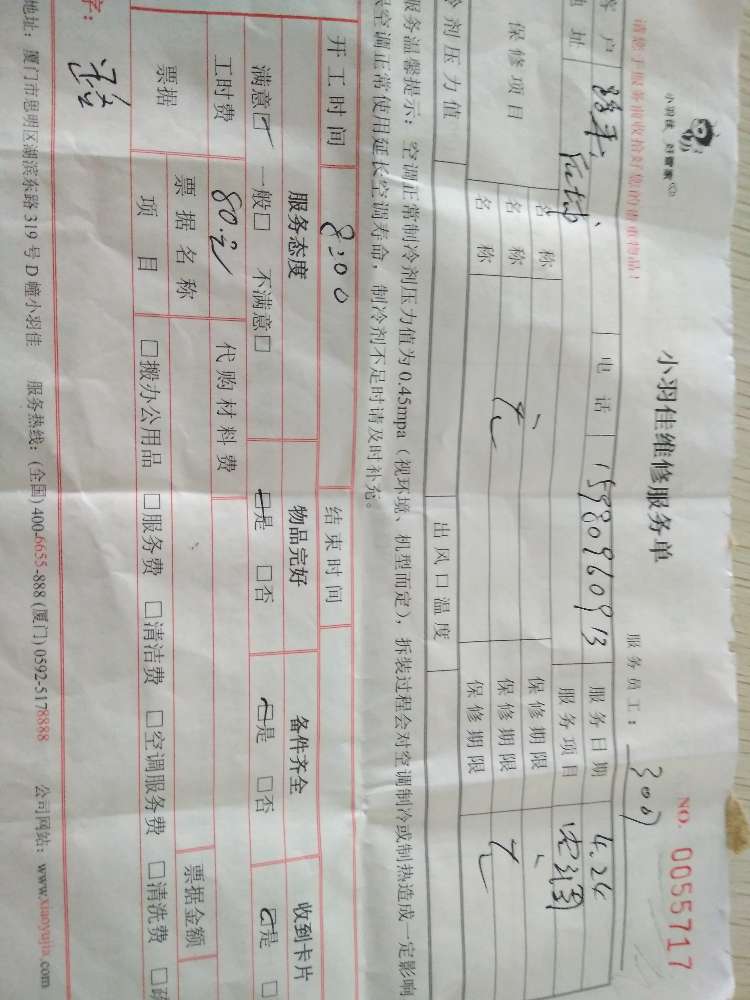 小羽佳 好管家
小羽佳维修服务单
NO. 0055717
请您于服务前收拾好您的贵重物品！
服务员工：
客户 电话 15980960913 服务日期 4.24
地址 服务项目
保修项目 名称 保修期限
名称 无 保修期限 无
名称 保修期限
冷剂压力值 出风口温度
服务温馨提示：空调正常制冷剂压力值为0.45mpa（视环境、机型而定），拆装过程会对空调制冷或制热造成一定影响
空调正常使用延长空调寿命，制冷剂不足时请及时补充。
开工时间 8:00 结束时间
服务态度 物品完好 备件齐全 收到卡片
满意☑ 一般□ 不满意□ ☑是 □否 ☑是 □否 ☑是 □
工时费 80.元 代购材料费
票据 票据名称 票据金额
项目 □搬办公用品 □服务费 □清洁费 □空调服务费 □清洗费 □
字：
地址：厦门市思明区湖滨东路319号D幢小羽佳 服务热线：(全国) 400-6655-888 (厦门) 0592-5178888 公司网站：www.xiaoyujia.com